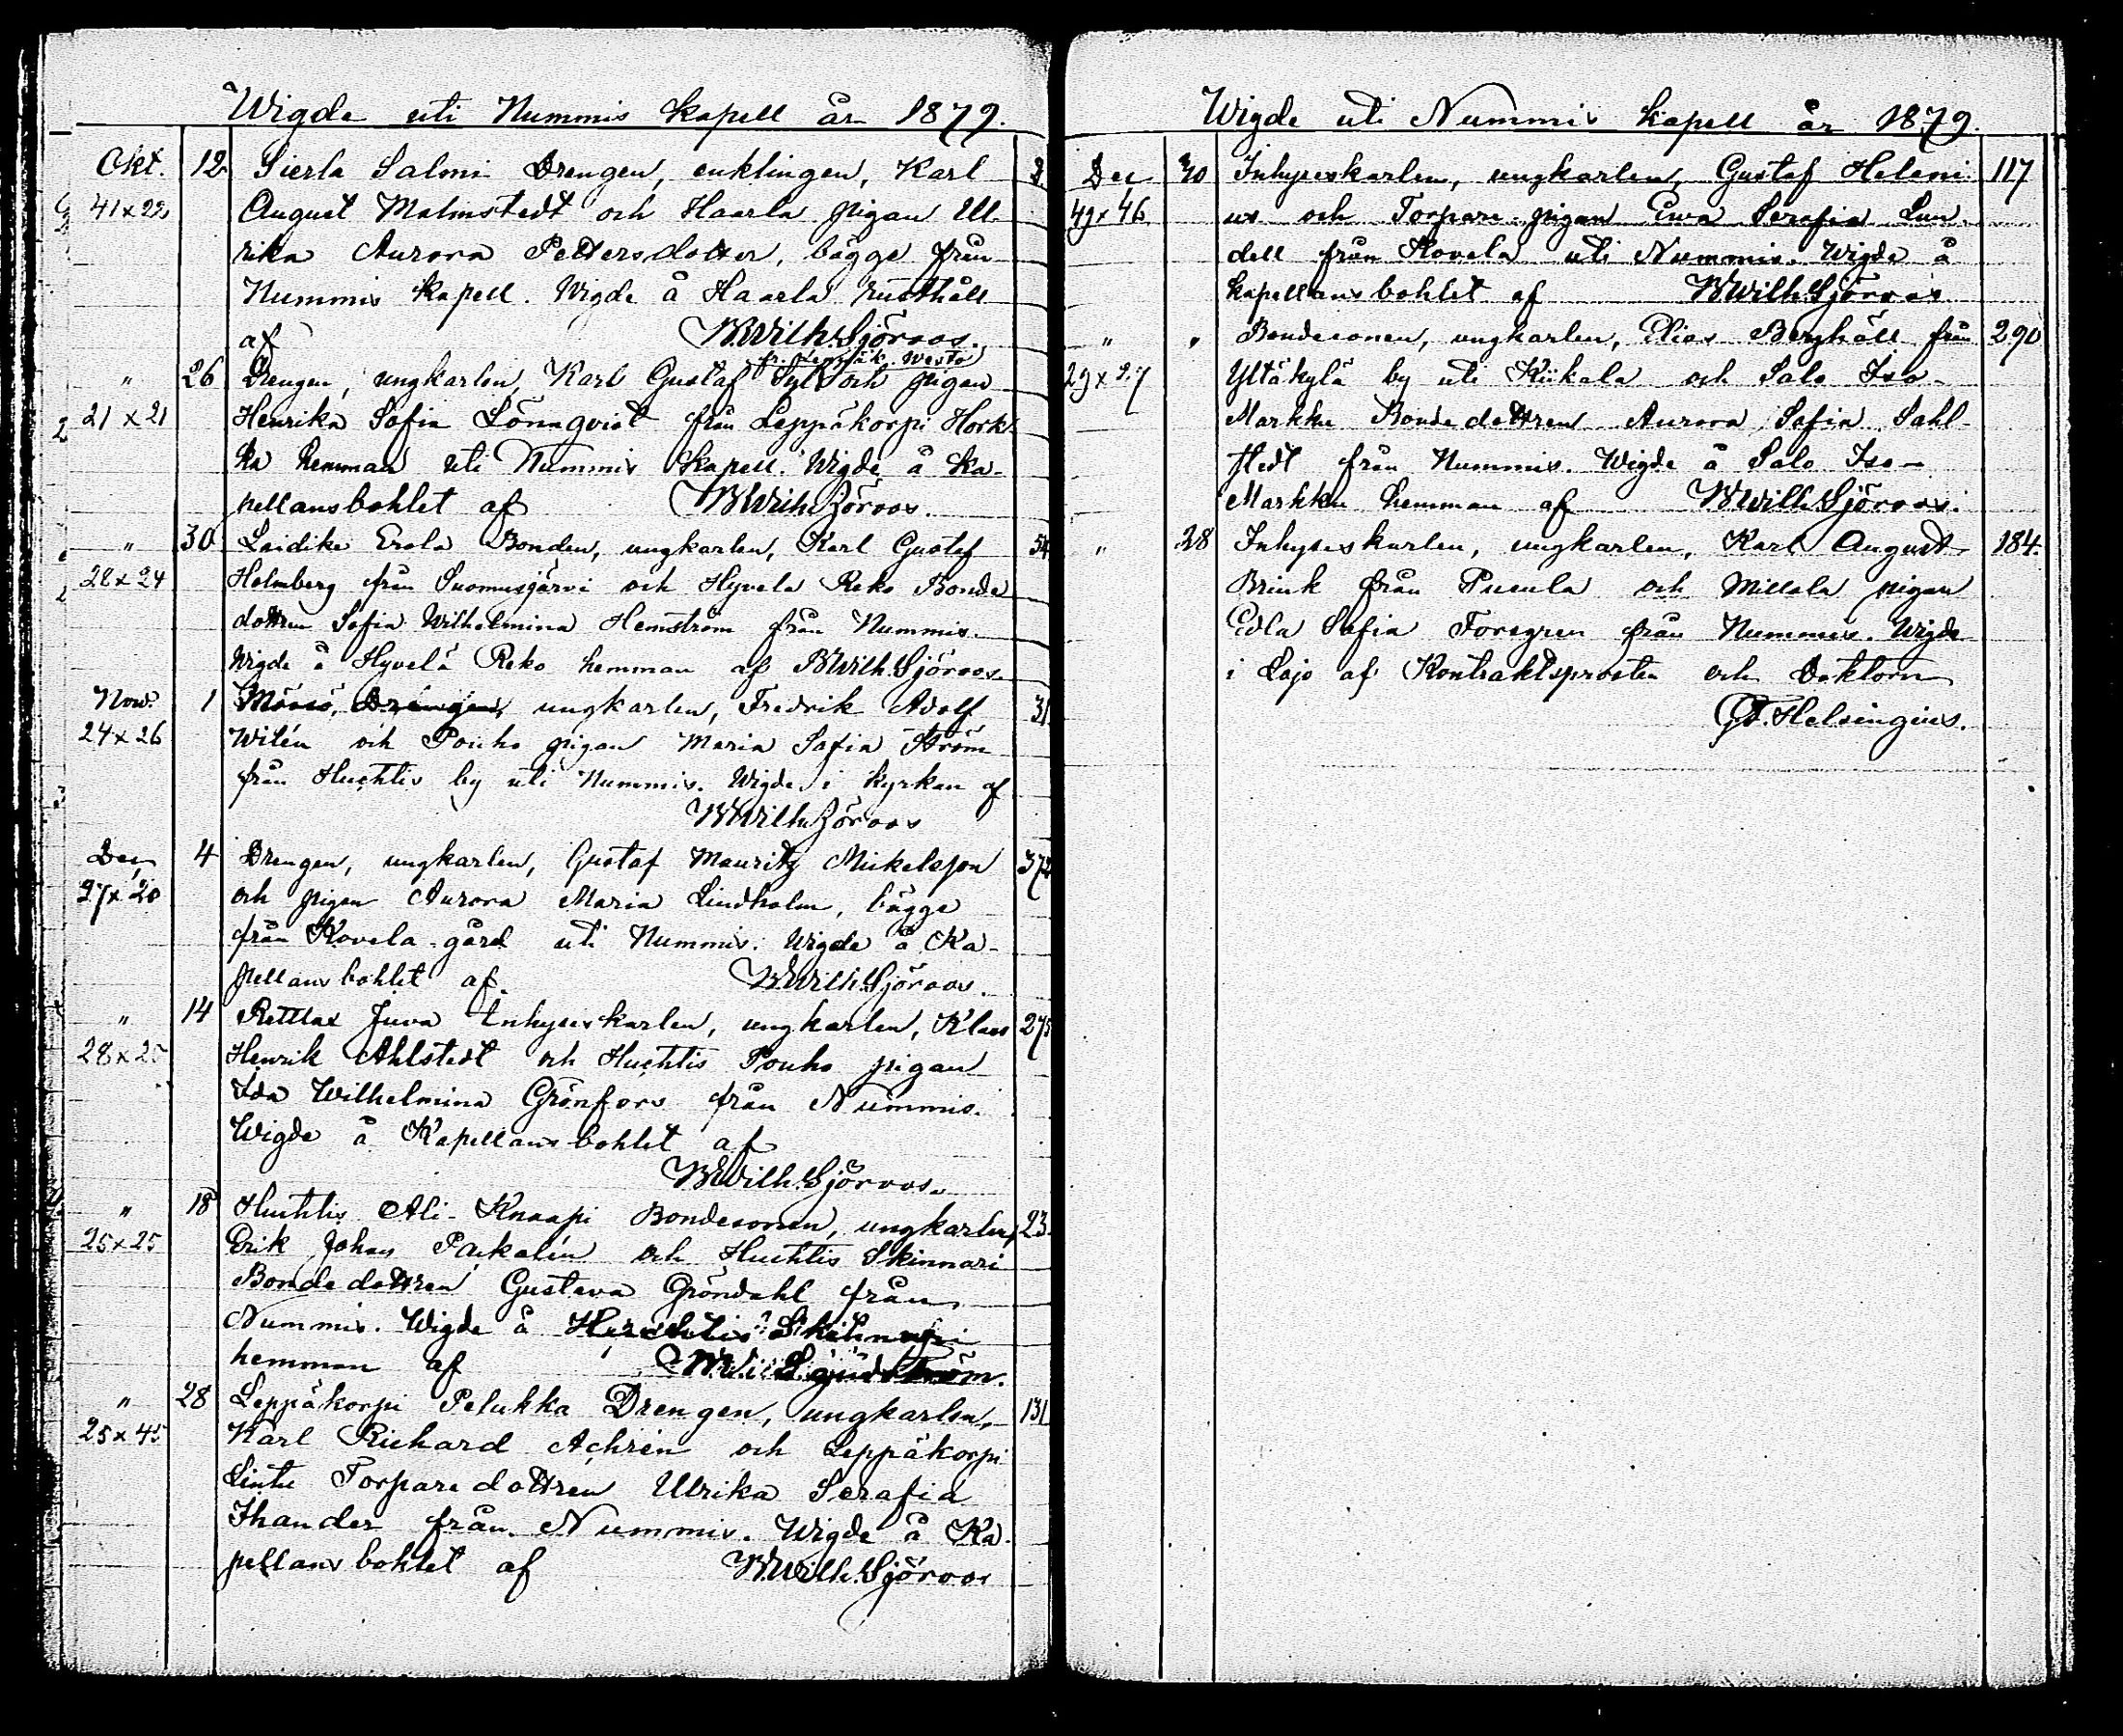 Wigde uti Nummis kapell år 1879.
Okt. 12 Sierla Salmi Drengen, enklingen, Karl
41 x 22 August Malmstedt och Haarla pigan Ul-
rika Aurora Pettersdotter, bägge från
Nummis kapell. Wigde å Haarla rusthåll
af BWilh.Sjöroos.
" 26 Drengen, ungkarlen, Karl Gustaf och pigan
21 x 21 Henrika Sofia Lönnqvist från Leppäkorpi Hork-
ka hemman uti Nummis kapell. Wigde å Ka-
pellansbohlet af BWilh.Sjöroos.
" 30 Laidike Erola Bonden, ungkarlen, Karl Gustaf 54
28 x 24 Holmberg från Suomusjärvi och Hyvelä Reko Bonde
dottren Sofia Wilhelmina Hemström från Nummis.
Wigde å Hyvelä Reko hemman af BWilh.Sjöroos.
Nov. 1 Drengen, ungkarlen, Fredrik Adolf 31
24 x 26 Wilén och Pouho pigan Maria Sofia Ström
från Huhtis by uti Nummis. Wigde i kyrkan af
BWilh.Sjöroos
Dec 4 Drengen, ungkarlen, Gustaf Mauritz Mickelsson 372
27 x 20 och pigan Aurora Maria Lindholm, bägge
från Kovela gård uti Nummis. Wigde å Ka-
pellansbohlet af. BWilh.Sjöroos.
" 14 Juva Inhyseskarlen, ungkarlen, Klaes 275
28 x 25 Henrik Ahlstedt och Huhtis Pouho pigan
Ida Wilhelmina Grönfors från Nummis.
Wigde å Kapellansbohlet af
BWilh.Sjöroos.
" 18 Huhtis Ali-Knaapi Bondesonen, ungkarlen, 23.
25 x 25 Erik Johan Packalén och Huhtis Skinnari
Bondedottren Gustava Gröndahl från
Nummis. Wigde å Huhtis Skinnari
hemman af
" 28 Leppäkorpi Pelukka Drengen, ungkarlen, 131
25 x 45 Karl Richard Achrén och Leppäkorpi
Lintu Torparedottren Ulrika Serafia
Ihander från Nummis. Wigde å Ka-
pellansbohlet af BWilh.Sjöroos
Wigde uti Nummis kapell år 1879.
Dec Inhyseskarlen, ungkarlen, Gustaf Heleni- 117
49 x 46 us och Torpare-pigan Ewa Serafia Lun-
dell från Kovela uti Nummis. Wigde å
kapellansbohlet af BWilh.Sjöroos
" " Bondesonen, ungkarlen, Elias Berghäll från 290
29 x 27 Yltäkylä by uti Kiikala och Salo Iso-
Markku Bondedottren Aurora Sofia Sahl-
stedt från Nummis. Wigde å Salo Iso-
Markku hemman af BWilh.Sjöroos.
" 28 Inhyseskarlen, ungkarlen, Karl August 184.
Brink från Pusula och Millola pigan
Edla Sofia Forsgren från Nummis. Wigde
i Lojo af Kontraktsprosten och Doktorn
Helsingius.